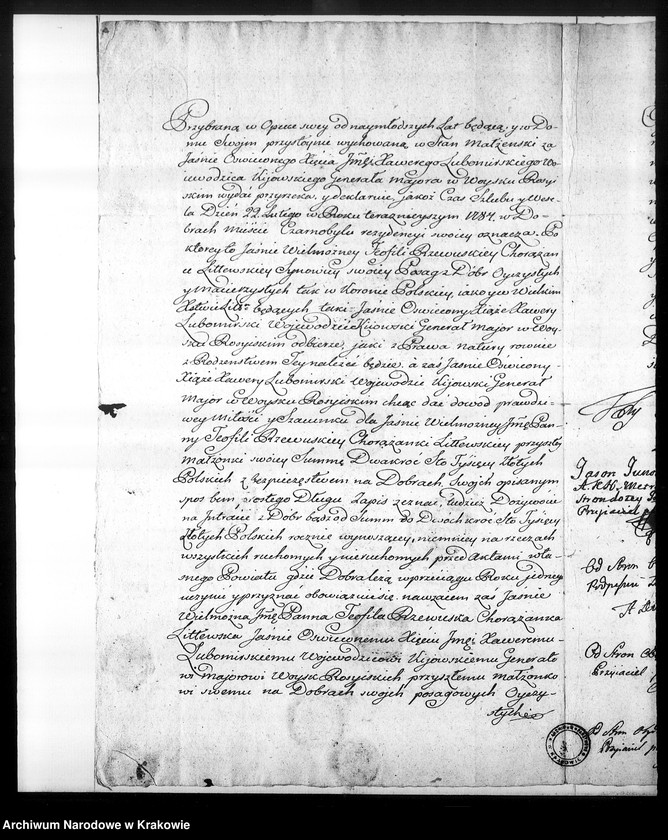 Przybraną w Opiece swey od naymłodszych Lat będącą, y w Do-
mu Swoim przystoynie wychowaną w Stan Małżenski za
Jaśnie Oświeconego Xięcia Jmći Xawerego Lubomirskiego Wo-
iewodzica Kijowskiego Generała Majora w Woysku Rosyi-
skim wydać przyrzeka, y deklaruie, jakoż Czas Szlubu y Wese-
la Dzień 22 Lutego w Roku teraznieyszym 1784. w Do-
brach Mieście Czarnobylu rezydencyi swoiey oznacza. Po
ktorey to Jaśnie Wielmożney Teofili Rzewuskiey Chorążan-
ce Littewskiey Synowicy swoiey Posag z Dóbr Oyczystych
y Macierzystych tak w Koronie Polskiey, iako y w Wielkim
Xstwie Litt: będących taki Jaśnie Oświecony Xiąże Xawery
Lubomirski Woiewodzic Kiiowski Generał Major w Woy-
sku Rosyiskim odbierze, jaki z Prawa natury rownie
z Rodzenstwem Jey należeć będzie, a zaś Jaśnie Oświecony
Xiąże Xawery Lubomirski Woiewodzic Kijowski Generał
Major w Woysku Rosyiskim chcąc dać dowod prawdzi-
wey Miłości y Szacunku dla Jaśnie Wielmożney Jmć Pan-
ny Teofili Rzewuskiey Chorążanki Littewskiey przyszłey
Małżonki swoiey Summę Dwakroć Sto Tysięcy Złotych
Polskich z bezpieczeństwem na Dobrach swoich opisanym
sposobem, prostego Długu Zapis zeznać, tudzież Dożywocie
na Intracie z Dobr bądź od Summ do Dwoch kroć Sto Tysięcy
Złotych Polskich rocznie wynoszącey, niemniey na rzeczach
wszystkich ruchomych y nieruchomych przed Aktami wła-
snego Powiatu gdzie Dobra leżą w przeciągu Roku jednego
uczynić y przyznać obowiązuie się. nawzaiem zaś Jaśnie
Wielmożna Jmć Panna Teofila Rzewuska Chorążanka
Littewska Jaśnie Oświeconemu Xięciu Jmći Xaweremu
Lubomirskiemu Woiewodzicowi Kijowskiemu Generało-
wi Majorowi Woysk Rosyiskich przyszłemu Małżonko-
wi swemu na Dobrach swoich posagowych Oyczy-
stych
Od Stron
Podpisuię
Od Stron
Przyiaciel
Od Stron
Przyiaciel
Archiwum Narodowe w Krakowie